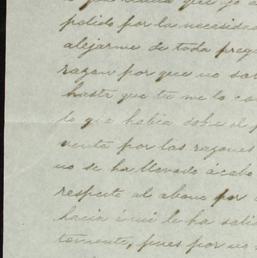 que yo a
pelido por la necesidad
alejarme de toda preg
razon por que no sa
hasta que tu me lo co
lo que habia sobre el
venta por las razones
no se ha llevado ácabo
respecto al abono por
hacia le ha sali
pues por